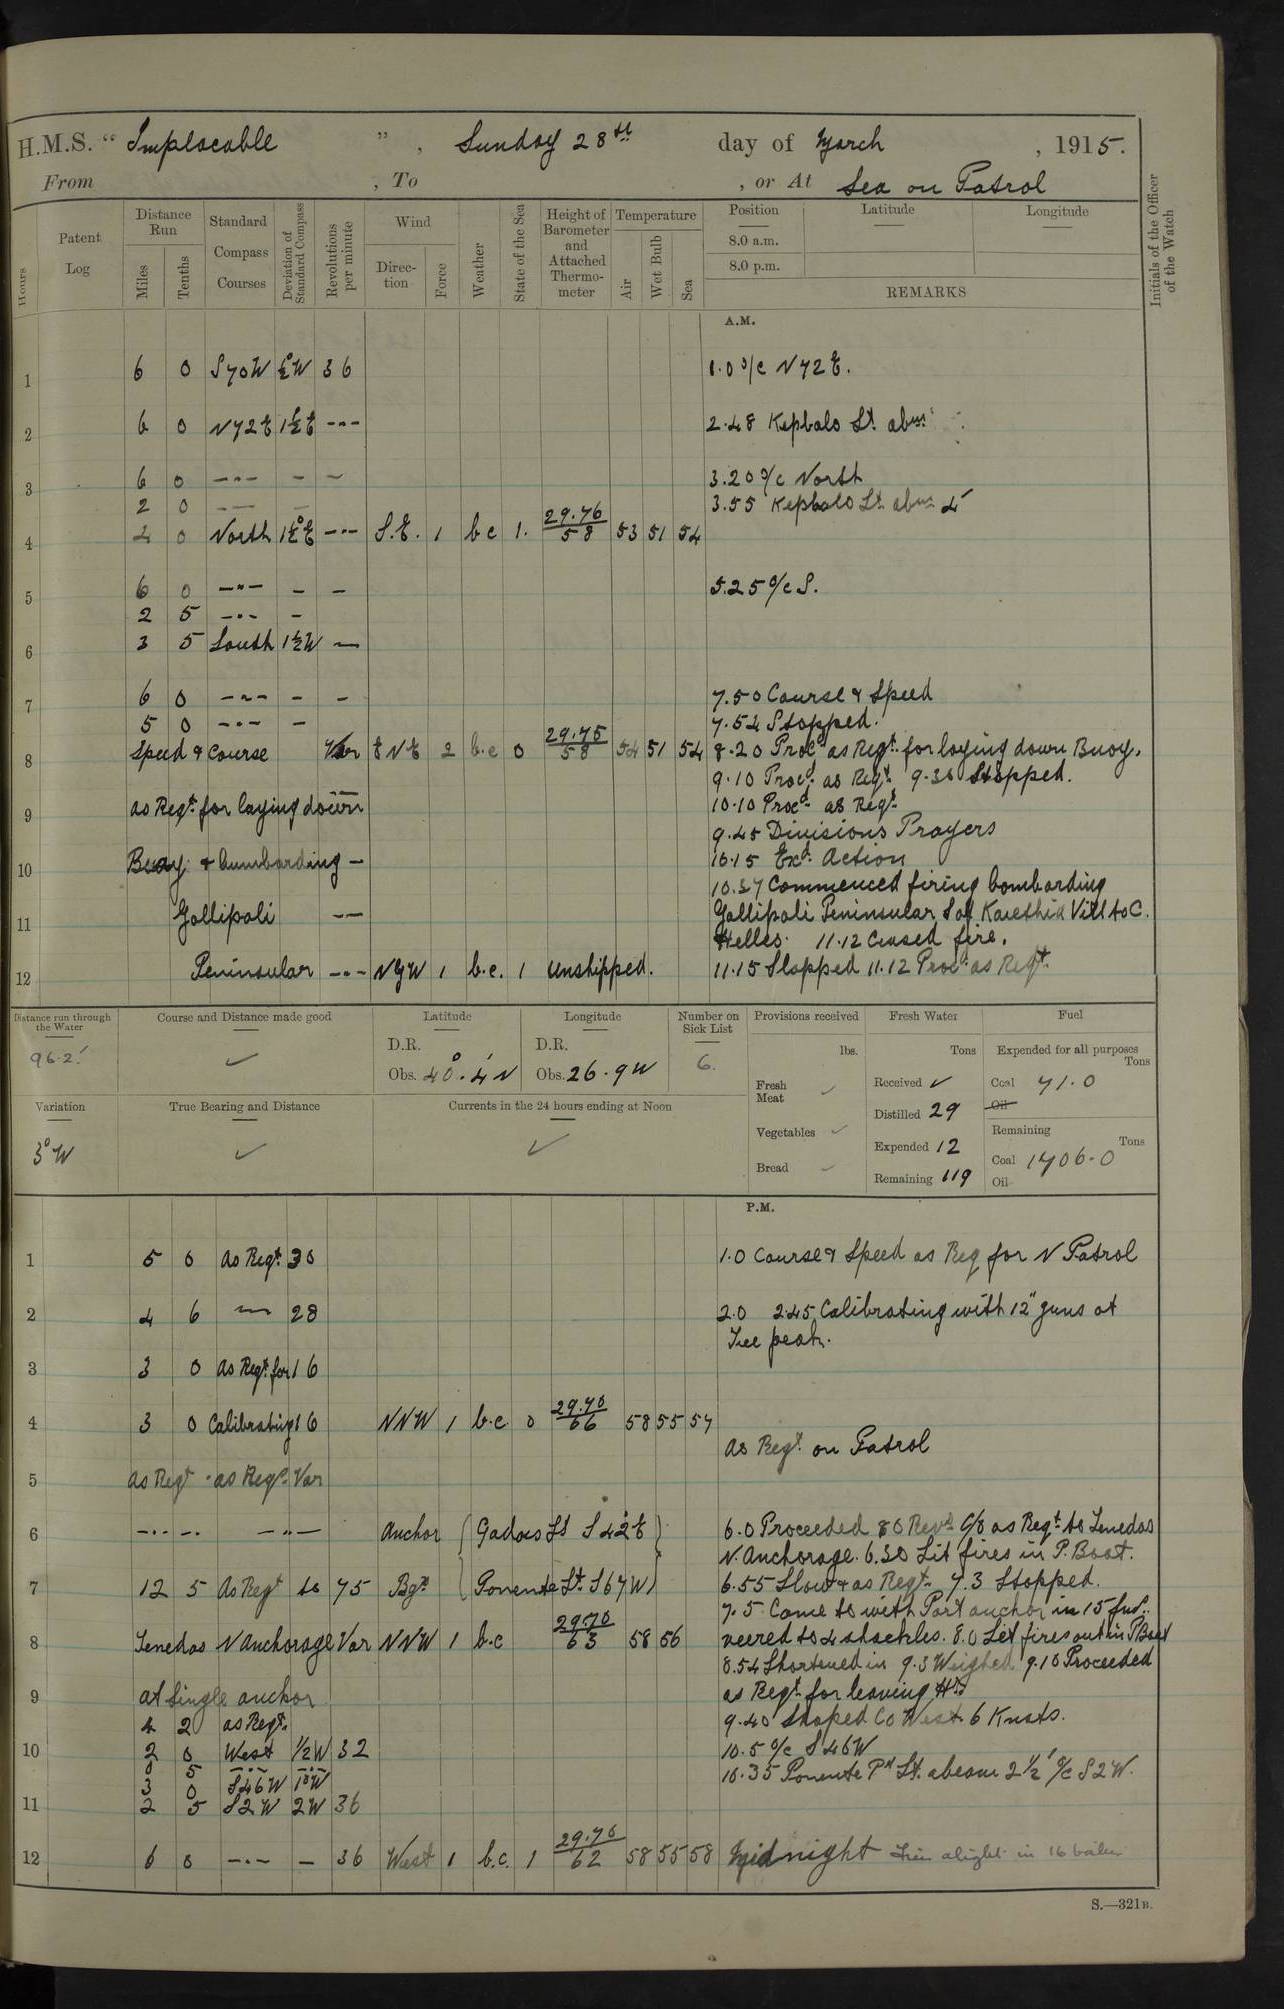 H.M.S. " Implacable " , Sunday 28th day of March , 1915.
From , To , or At Sea on Patrol
Hours
Patent Log
Distance Run
Miles
Tenths
Standard Compass Courses
Deviation of Standard Compass
Revolutions per minute
Wind
Direction
Force
Weather
State of the Sea
Height of Barometer and Attached Thermometer
Temperature
Air
Wet Bulb
Sea
Position
8.0 a.m.
8.0 p.m.
Latitude
Longitude
REMARKS
Initials of the Officer of the Watch
A.M.
1 6 0 S70W ½°W 36 1.0 a/c N72E.
2 6 0 N72E 1½E -"- 2.48 Kephalo Lt. abm
3 6 0 -"- - - 3.20 a/c North
2 0 -"- - 3.55 Kephalo Lt. abm 4'
4 4 0 North 1½°E -"- S.E. 1 b c 1. 29.76/58 53 51 54
5 6 0 -"- - - 5.25 a/c S.
2 5 -"- -
6 3 5 South 1½W -
7 6 0 -"- - - 7.50 Course & Speed
5 0 -"- - 7.54 Stopped.
8 Speed & Course Var E N E 2 b.c 0 29.75/58 54 51 54 8.20 Procd as Reqt. for laying down Buoy.
9.10 Procd. as Reqt. 9.36 Stopped.
9 as Reqt. for laying down 10.10 Procd- as Reqt.
9.45 Divisions Prayers
10 Buoy & bumbarding - 10.15 Exd. Action
10.37 Commenced firing bombarding
11 Gallipoli -"- Gallipoli Peninsular S of Kriethia Vill to C.
Helles. 11.12 Ceased fire.
12 Peninsular -"- N by W 1 b.c. 1 unshipped. 11.15 Stopped 11.12 Procd. as Reqt.
Distance run through the Water
96.2'
Course and Distance made good
Latitude
D.R.
Obs. 40°.4' N
Longitude
D.R.
Obs. 26.9 W
Number on Sick List
6.
Variation
3°W
True Bearing and Distance
Currents in the 24 hours ending at Noon
Provisions received
lbs.
Fresh Meat
Vegetables
Bread
Fresh Water
Tons
Received
Distilled 29
Expended 12
Remaining 119
Fuel
Expended for all purposes
Tons
Coal 71.0
Oil
Remaining
Tons
Coal 1706.0
Oil
P.M.
1 5 0 as Reqt. 30 1.0 Course & Speed as Req for N Patrol
2 4 6 -"- 28 2.0 2.45 Calibrating with 12" guns at
peak.
3 3 0 as Reqt. for 16
4 3 0 Calibrating 16 NNW 1 b.c. 0 29.70/66 58 55 57
as Reqt. on Patrol
5 as Reqt as Reqt. Var
6 -"- -"- Anchor Gadaro Lt S 42°E 6.0 Proceeded 80 Revs C/o as Reqt. to Tenedos
N. Anchorage. 6.30 Lit fires in P. Boat.
7 12 5 As Reqt to 75 Bgs Ponente Lt. S 67 W 6.55 Slow & as Reqt. 7.3 Stopped.
7.5 Came to with Port anchor in 15 fms.
8 Tenedos N Anchorage Var NNW 1 b.c 29.70/63 58 56 veered to 4 shackles. 8.0 Let fires out in P Boat
8.54 Shortened in 9.3 Weighed 9.10 Proceeded
9 at single anchor as Reqt. for leaving Hr.
4 2 as Reqt. 9.40 Shaped Co West 6 Knots.
10 2 0 West ½W 32 10.5 a/c S46W
0 5 -"- -"- 10.35 Ponente Pt Lt. abeam 2½' a/c S2W.
3 0 S46W 1°W
11 2 5 S2W 2W 36
12 6 0 -"- - 36 West 1 b.c. 1 29.70/62 58 55 58 Midnight Fires alight in 16 boilers
S.—321B.